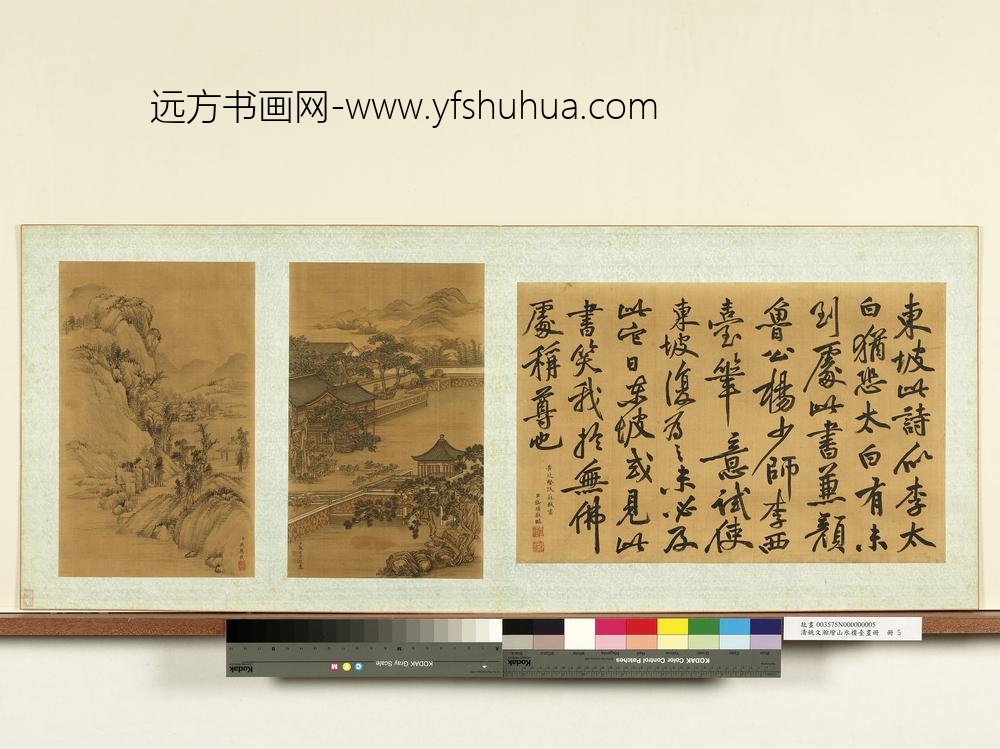 远方书画网-www.yfshuhua.com
東坡此詩似李太
白猶恐太白有未
到處此書兼顏
魯公楊少師李西
臺筆意試使
東坡復為之未必及
此它日東坡或見此
書笑我於無佛
處稱尊也
黃庭堅跋蘇軾書
故畫 003575N000000005
清姚文瀚繪山水樓臺畫冊 冊 5
KODAK Gray Scale
Kodak
C
Y
M
KODAK Color Control Patches
Kodak
A
M
B